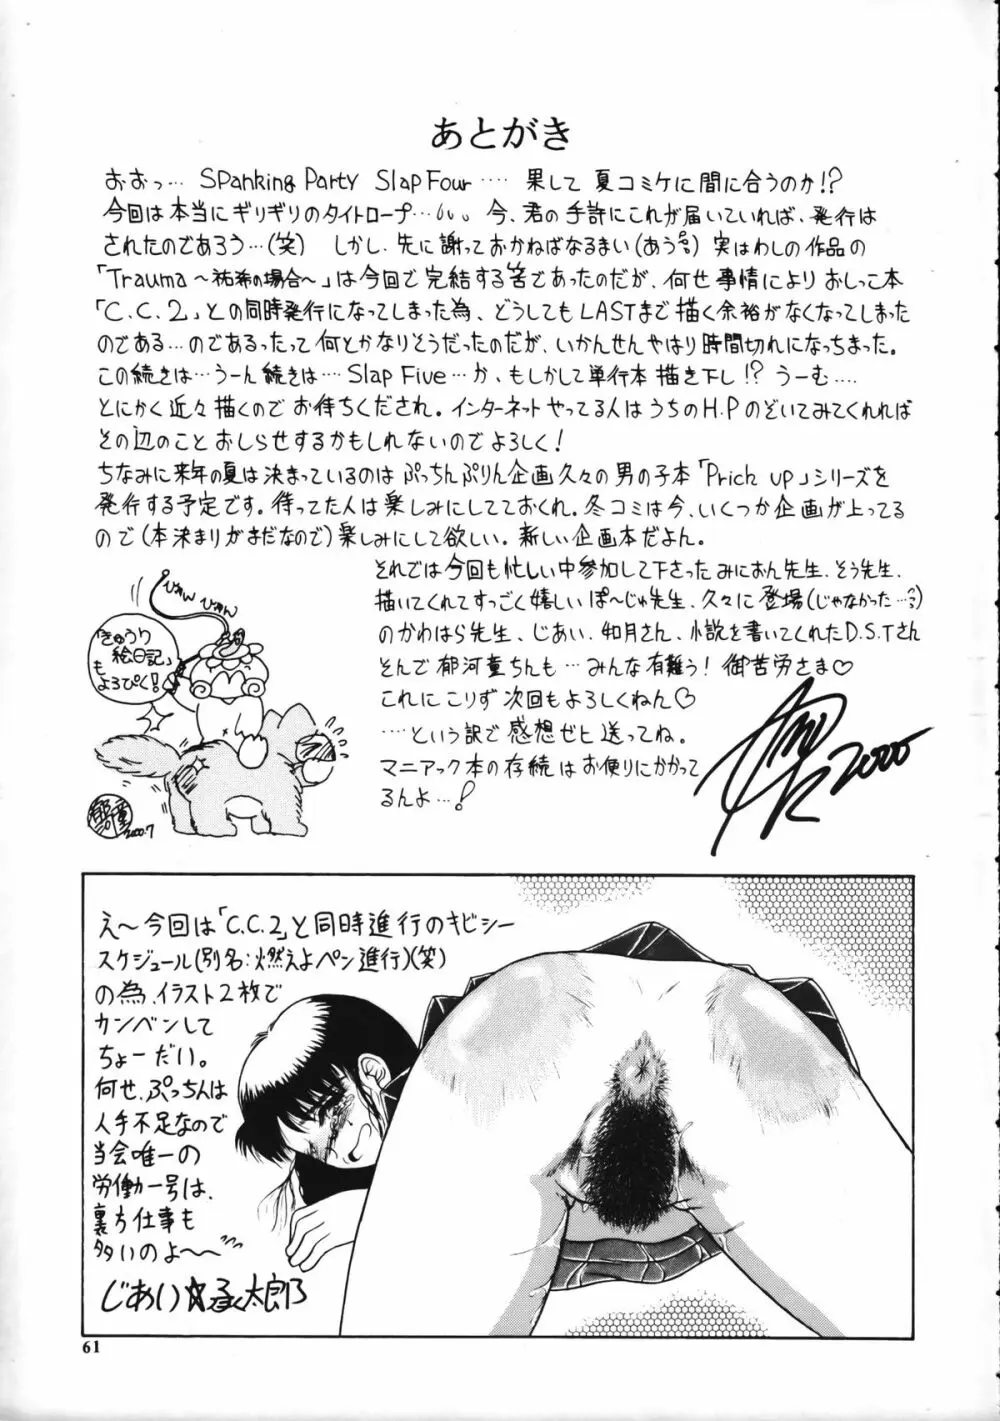 あとがき
おおっ… Spanking Party Slap Four …‥ 果して 夏コミケに間に合うのか!?
今回は本当にギリギリのタイトロープ… 今、君の手許にこれが届いていれば、発行は
されたのであろう…(笑) しかし、先に謝っておかねばなるまい(あうぅ) 実はわしの作品の
「Trauma～祐希の場合～」は今回で完結する筈であったのだが、何せ事情により おしっこ本
「C.C.2」との同時発行になってしまった為、どうしてもLASTまで描く余裕がなくなってしまった
のである…のであるったって 何とかなりそうだったのだが、いかんせんやはり時間切れになっちまった。
この続きは…うーん続きは… Slap Five…か、もしかして単行本 描き下し!? うーむ‥‥
とにかく近々描くので お待ちくだされ。インターネットやってる人はうちのH.Pのぞいてみてくれれば
その辺のこと おしらせするかもしれないのでよろしく!
ちなみに来年の夏は決まっているのは ぷっちんぷりん企画久々の男の子本「Prich up」シリーズを
発行する予定です。待ってた人は楽しみにしてておくれ。冬コミは今、いくつか企画が上ってる
ので(本決まりがまだなので)楽しみにして欲しい。新しい企画本だよん。
それでは今回も忙しい中参加して下さったみにおん先生、そう先生、
描いてくれてすっごく嬉しいぽ～じゅ先生、久々に登場(じゃなかった…)
のかわはら先生、じあい、如月さん、小説を書いてくれたD.S.Tさん
そんで郁河童ちんも…みんな有難う! 御苦労さま♡
これにこりず次回もよろしくねん♡
‥‥という訳で感想ゼヒ送ってね。
マニアック本の存続はお便りにかかって
るんよ…!
2000
ひょん ひょん
「きゅうり
絵日記」
も
よろぴく!
2000.7
え～今回は「C.C.2」と同時進行のキビシー
スケジュール(別名:燃えよペン進行)(笑)
の為、イラスト2枚で
カンベンして
ちょーだい。
何せ、ぷっちんは
人手不足なので
当会唯一の
労働一号は、
裏方仕事も
多いのよ～～
じあい☆承太郎
61